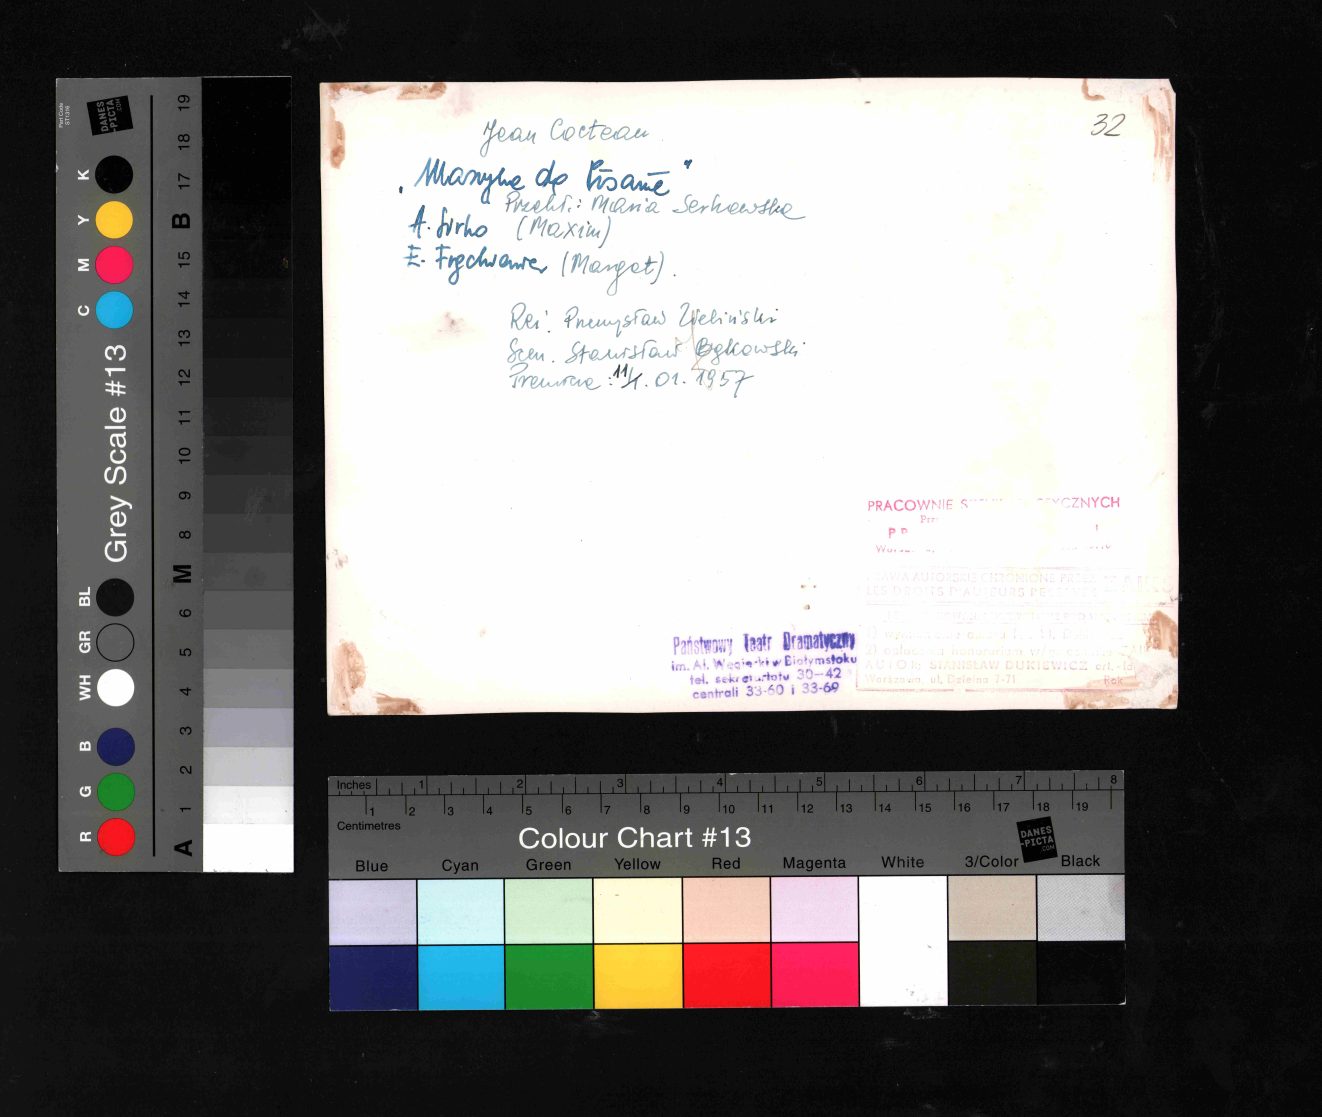 Jean Cocteau
32
„Maszyna do Pisania"
Przekł.: Maria Serkowska
A. Sirko (Maxim)
E. (Margot).
Reż. Przemysław Zieliński
Scen. Stanisław Bąkowski
Premiera: 11/1. 01. 1957
PRACOWNIE
Państwowy Teatr Dramatyczny
im. Al. Węgierki w Białymstoku
tel. sekretariatu 30-42
centrali 33-60 i 33-69
PRAWA AUTORSKIE CHRONIONE PRZEZ
LES DROITS D'AUTEURS
AUTOR: STANISŁAW DUKIEWICZ
Warszawa, ul. Dzielna 7-71
Rok
Part Code
ST1316
DANES
-PICTA
.COM
Grey Scale #13
R G B WH GR BL C M Y K
A 1 2 3 4 5 6 M 8 9 10 11 12 13 14 15 B 17 18 19
Inches 1 2 3 4 5 6 7 8
1 2 3 4 5 6 7 8 9 10 11 12 13 14 15 16 17 18 19
Centimetres
Colour Chart #13
DANES
-PICTA
.COM
Blue Cyan Green Yellow Red Magenta White 3/Color Black